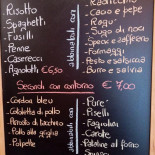 Risotto
Spaghetti
Fusilli
Penne
Caserecci
Agnolotti €6,50
abbinabili con
- Cacio e pepe
- Ragu'
- Sugo di noci
- Speck e zafferano
- Formaggi
- Pesto e salvia
- Burro e salvia
Secondi con contorno € 7,00
- Cordon bleu
- Cotoletta di pollo
- Arrosto di tacchino
- Pollo alla griglia
- Polpette
abbinabili con
- Pure'
- Piselli
- Fagiolini
- Carote
- Patatine al forno